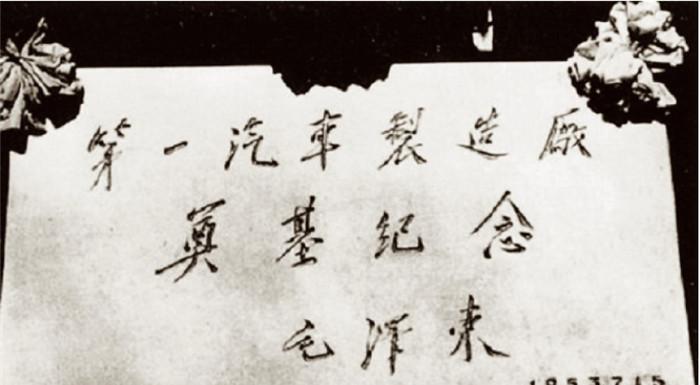 第一汽車製造廠
奠基纪念
毛泽东
1953715